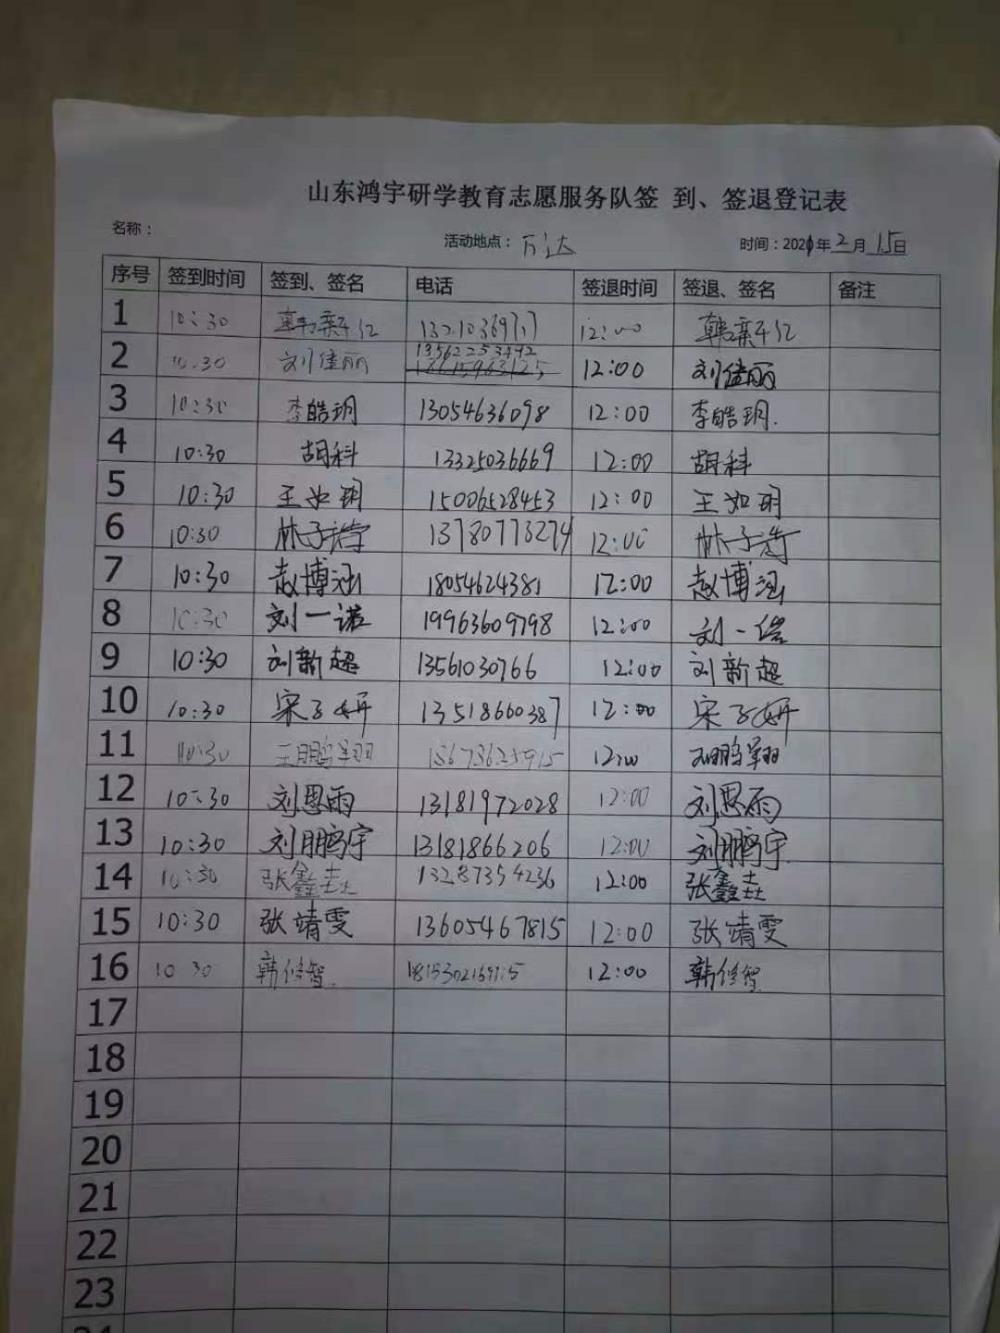 山东鸿宇研学教育志愿服务队签 到、签退登记表
名称： 活动地点：万达 时间：2021年2月15日
序号 签到时间 签到、签名 电话 签退时间 签退、签名 备注
1 10:30 12:00
2 10:30 刘佳丽 13562253492 12:00 刘佳丽
3 10:30 李皓玥 13054636098 12:00 李皓玥.
4 10:30 胡科 13325036669 12:00 胡科
5 10:30 王如玥 15006528453 12:00 王如玥
6 10:30 林子涛 13780773274 12:00 林子涛
7 10:30 赵博涵 18054624381 12:00 赵博涵
8 10:30 刘一诺 19963609798 12:00 刘一诺
9 10:30 刘新超 13561030766 12:00 刘新超
10 10:30 宋子妍 13518660387 12:00 宋子妍
11 10:30 王鹏翔 12:00 王鹏翔
12 10:30 刘思雨 13181972028 12:00 刘思雨
13 10:30 刘鹏宇 13181866206 12:00 刘鹏宇
14 10:30 张鑫垚 13287354236 12:00 张鑫垚
15 10:30 张靖雯 13605467815 12:00 张靖雯
16 10 30 韩修智 12:00 韩修智
17
18
19
20
21
22
23